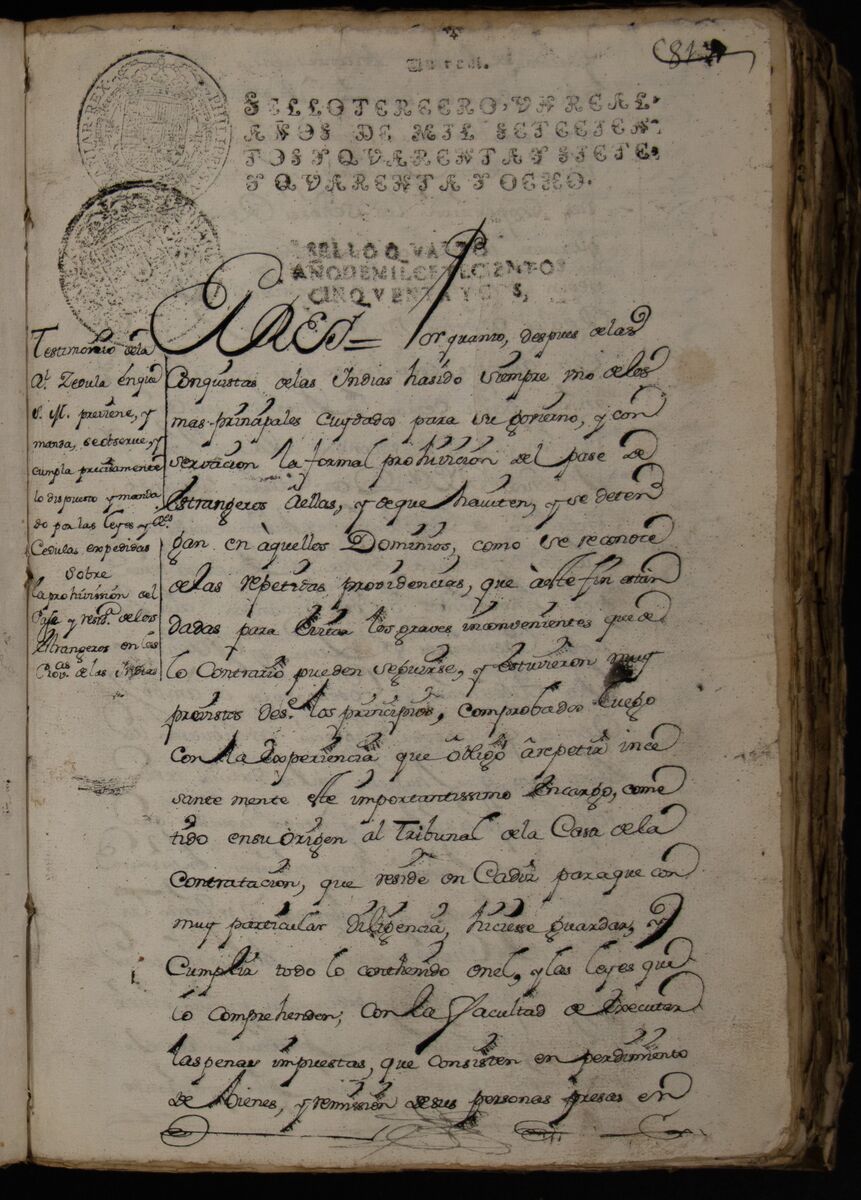 Un real.
SELLO TERCERO, UN REAL,
AÑOS DE MIL SETECIEN-
TOS Y QUARENTA Y SIETE,
Y QUARENTA Y OCHO.
SELLO QVARTO
AÑO DE MIL CETECIENTOS
CINQVENTA Y
Testimonio dela
Rl. Zedula en que
S. M. previene, y
manda, se observe, y
cumpla precisamente
lo dispuesto y manda
do por las leyes y Rs.
Cedulas expedidas
sobre
la prohivision del
Pase y resida. de los
Estrangeros en las
Provas. de las Indias
EL REY = Por quanto, despues de las
Conquistas de las Indias ha sido siempre uno de los
mas principales cuydados para su govierno, y con
servacion la formal prohivicion del pase de
Estrangeros à ellas, y de que haviten, y se deten
gan en àquellos Dominios, como se reconoce
de las repetidas providencias, que à este fin estàn
dadas para evitar los graves inconvenientes que de
lo contrario pueden seguirse, y estuvieron muy
previstos desde los principios, comprobados luego
con la experiencia que obligò à repetir ince
sante mente este importantissimo encargo, come
tido en su òrigen al Tribunal de la Casa de la
Contratacion, que reside en Cadiz para que con
muy particular diligencia, hiciese guardar, y
Cumplir todo lo conthenido en el, y las leyes que
lo comprehenden; con la facultad de executar
las penas impuestas, que consisten en perdimiento
de bienes, y remission de sus personas presas en